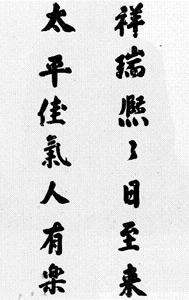 祥瑞熙々日至来
太平佳氣人有楽